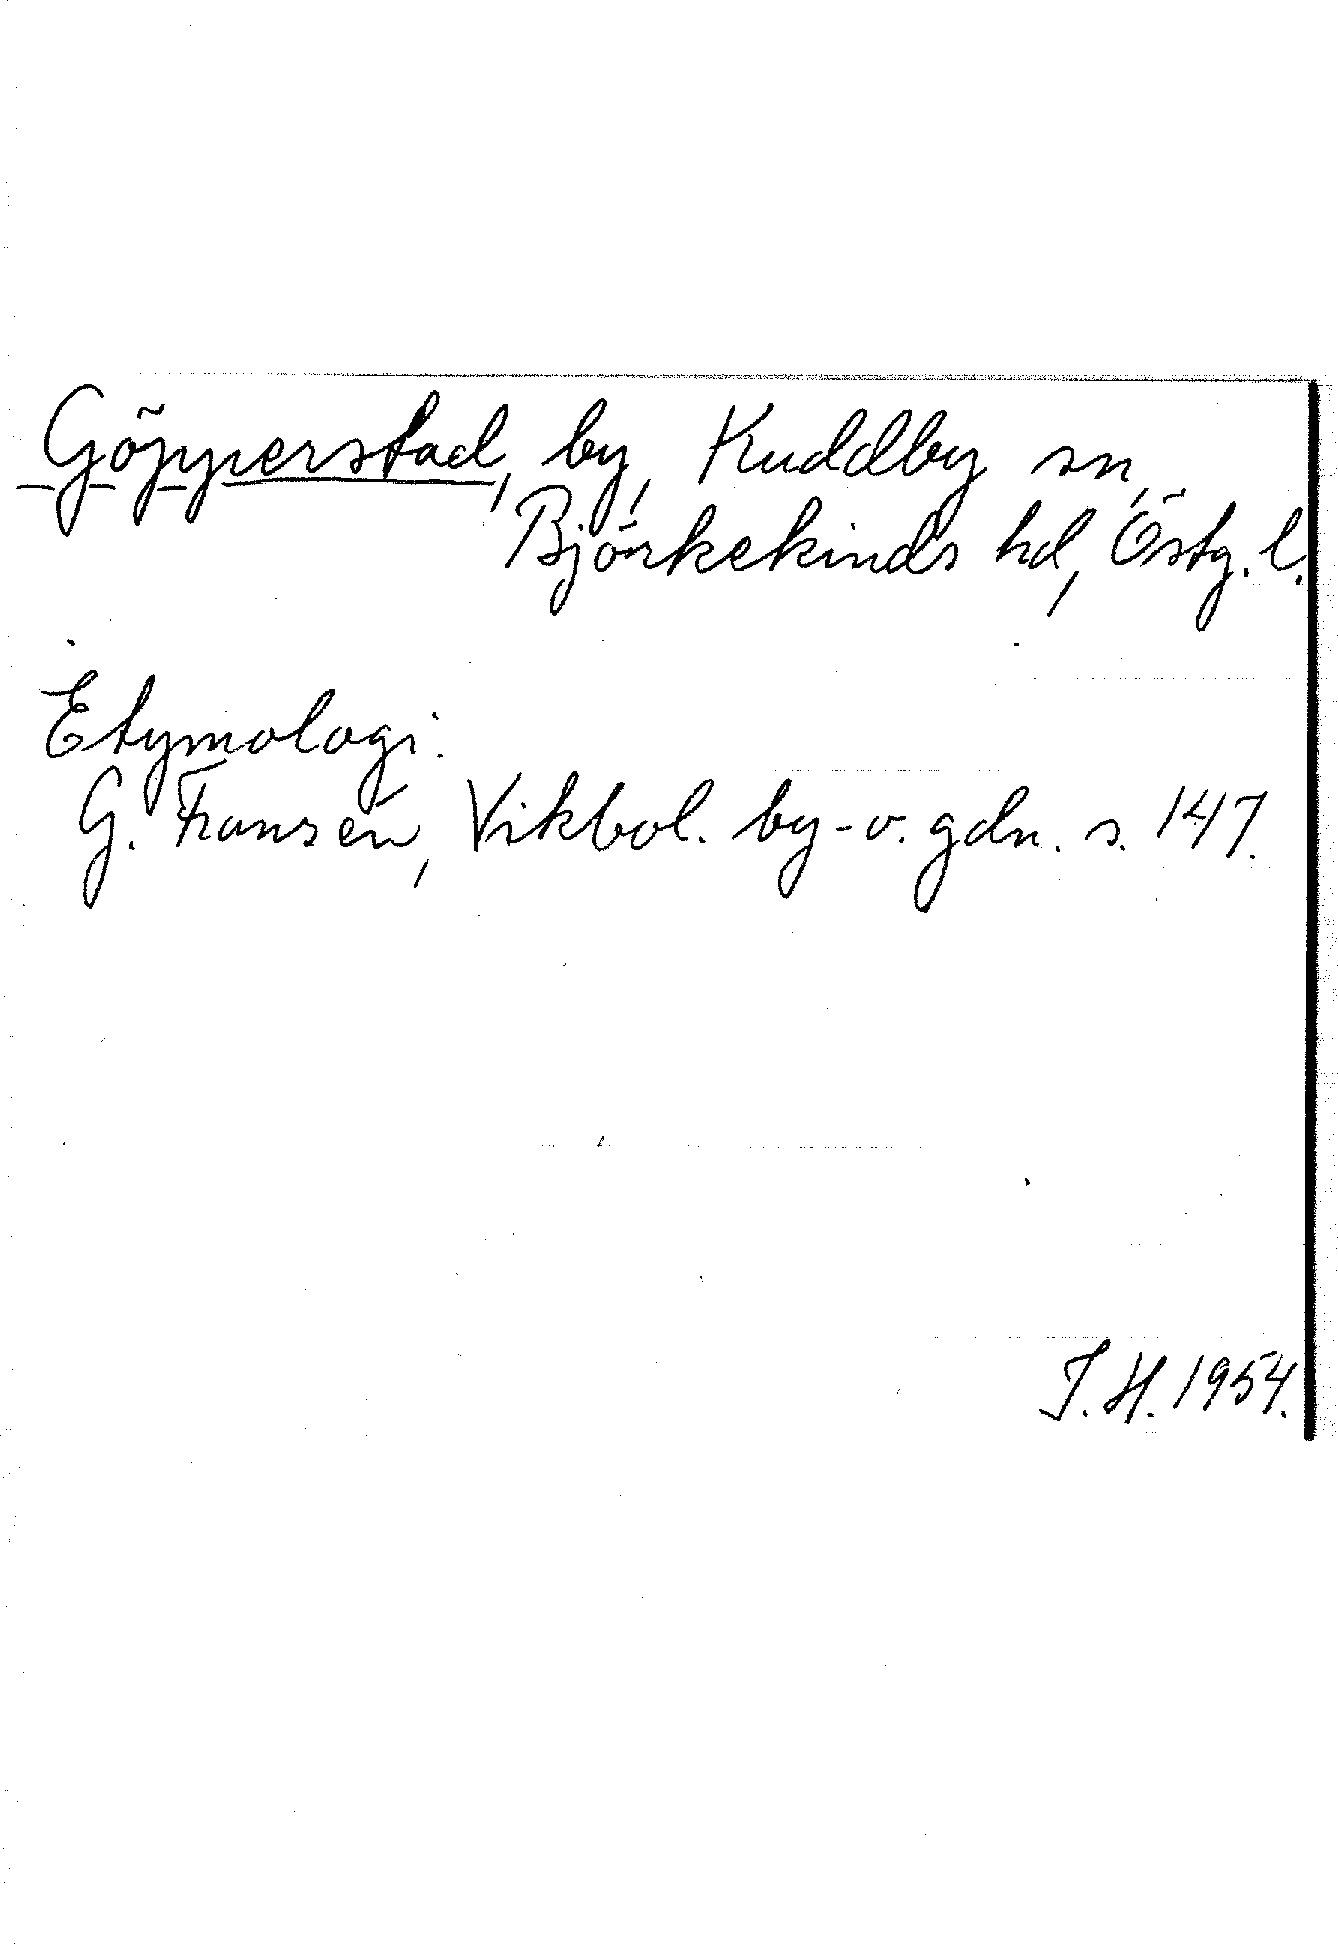 Göpperstad, by, Kuddby sn,
Björkekinds hd, Östg. l.
Etymologi:
G. Franzén, Vikbol. by- o. gdn. s. 147.
I. H. 1954.